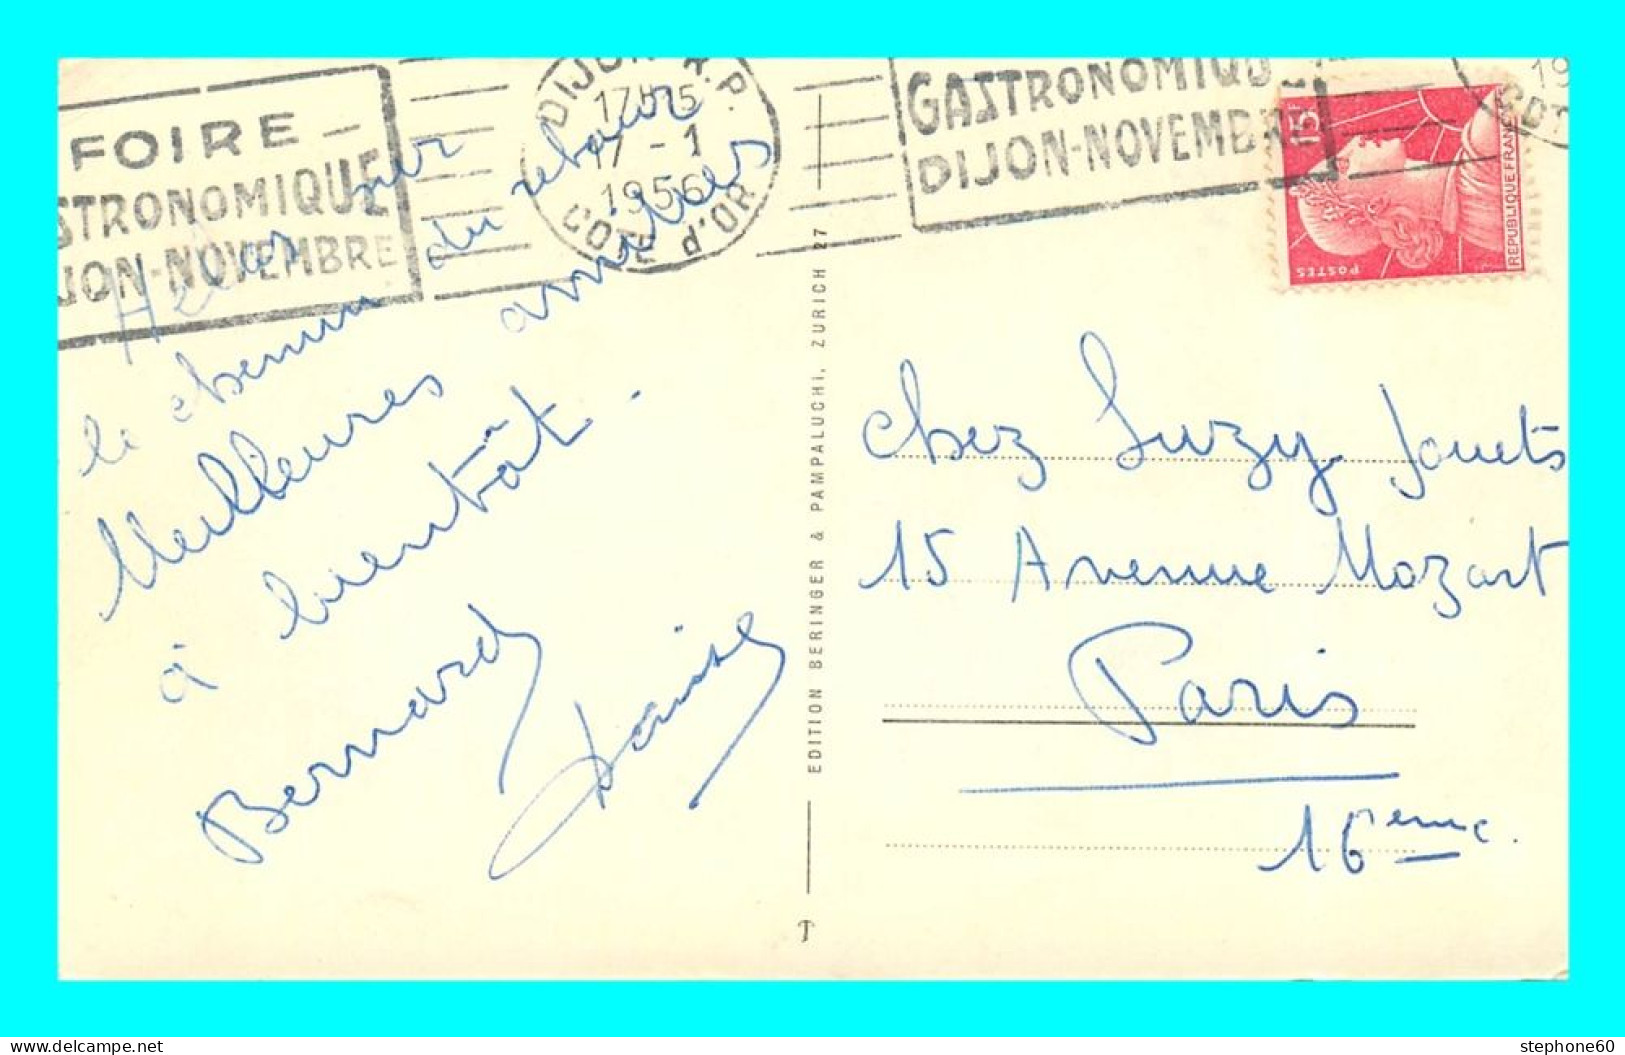 FOIRE
STRONOMIQUE
JON-NOVEMBRE
DIJON R.P.
17H15
17-1
1956
COTE D'OR
GASTRONOMIQUE
DIJON-NOVEMBRE
19
15F
POSTES
REPUBLIQUE FRANC
Hélas sur
le chemin du retour
Meilleures amitiés
à bientôt.
Bernard
EDITION BERINGER & PAMPALUCHI, ZURICH 27
Chez Suzy Jouets
15 Avenue Mozart
Paris
16eme.
stephone60